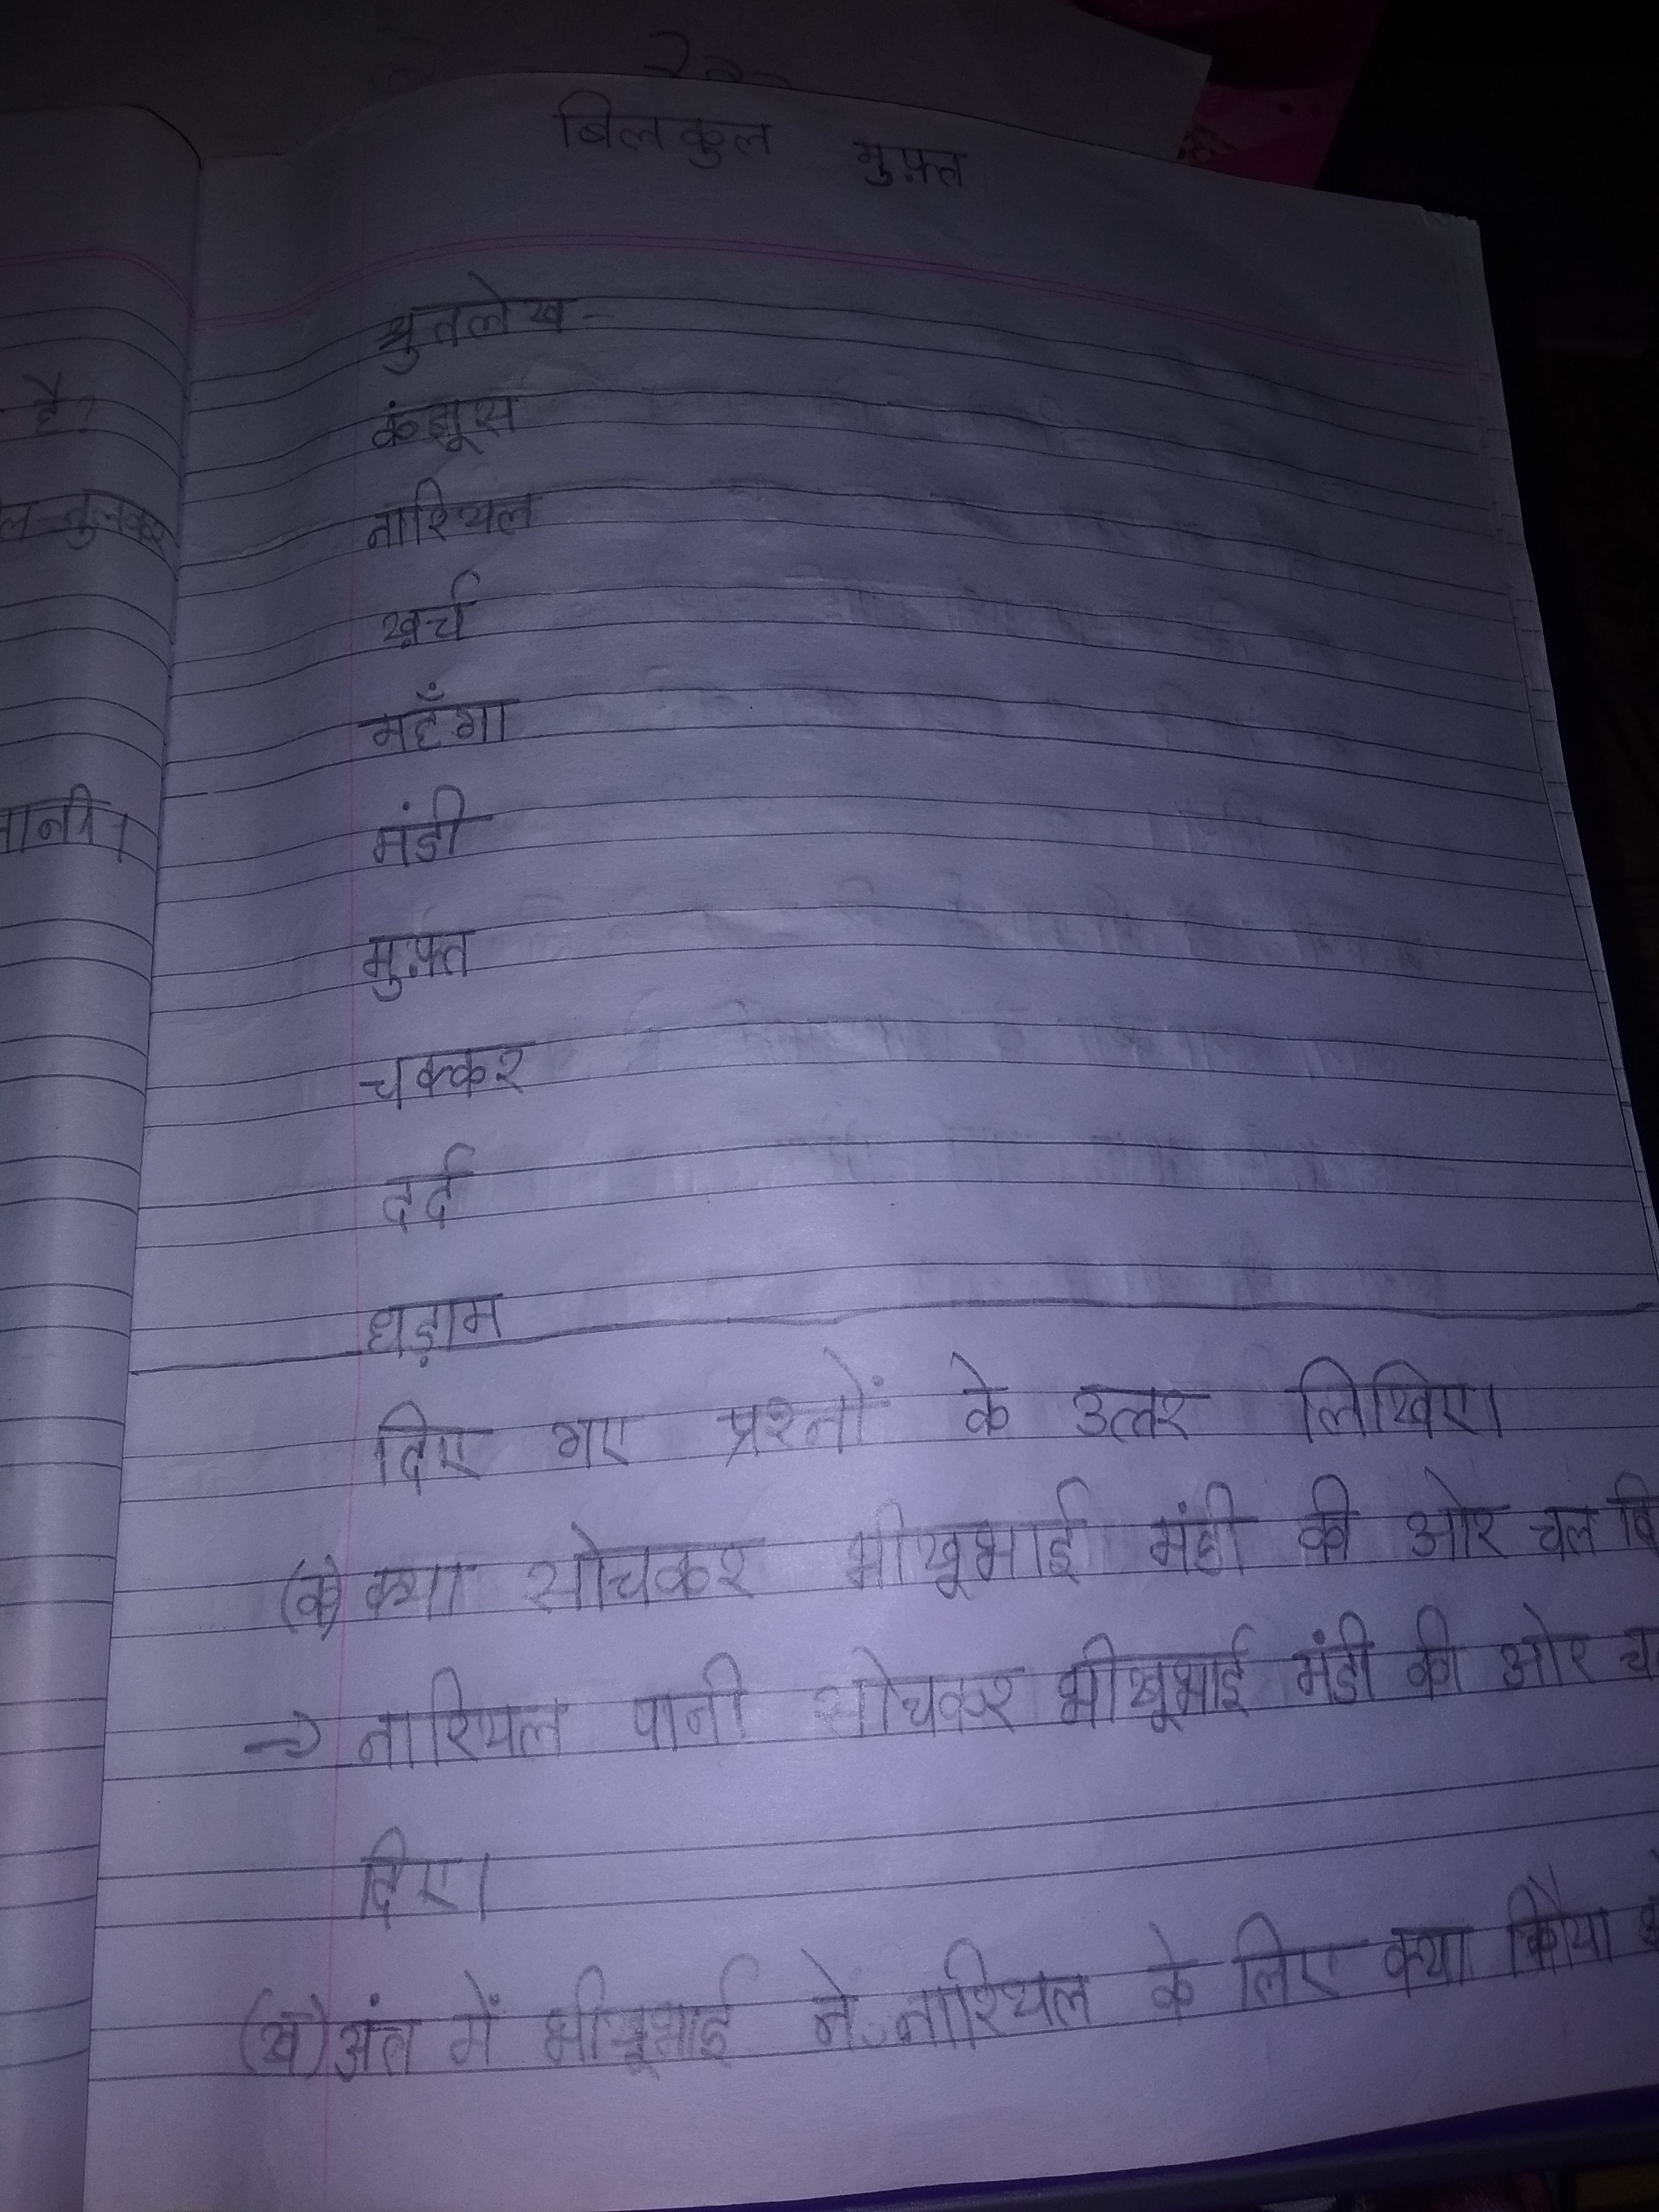 बिलकुल मुफ़्त
श्रुतलेख-
कंझूस
नारियल
ख़र्च
महँगा
मंडी
मुफ़्त
चक्कर
दर्द
धड़ाम
दिए गए प्रश्नों के उत्तर लिखिए।
(क) क्या सोचकर भीखूभाई मंडी की ओर चल
→ नारियल पानी सोचकर भीखूभाई मंडी की ओर
दिए।
(ख) अंत में भीखूभाई ने नारियल के लिए क्या
है?